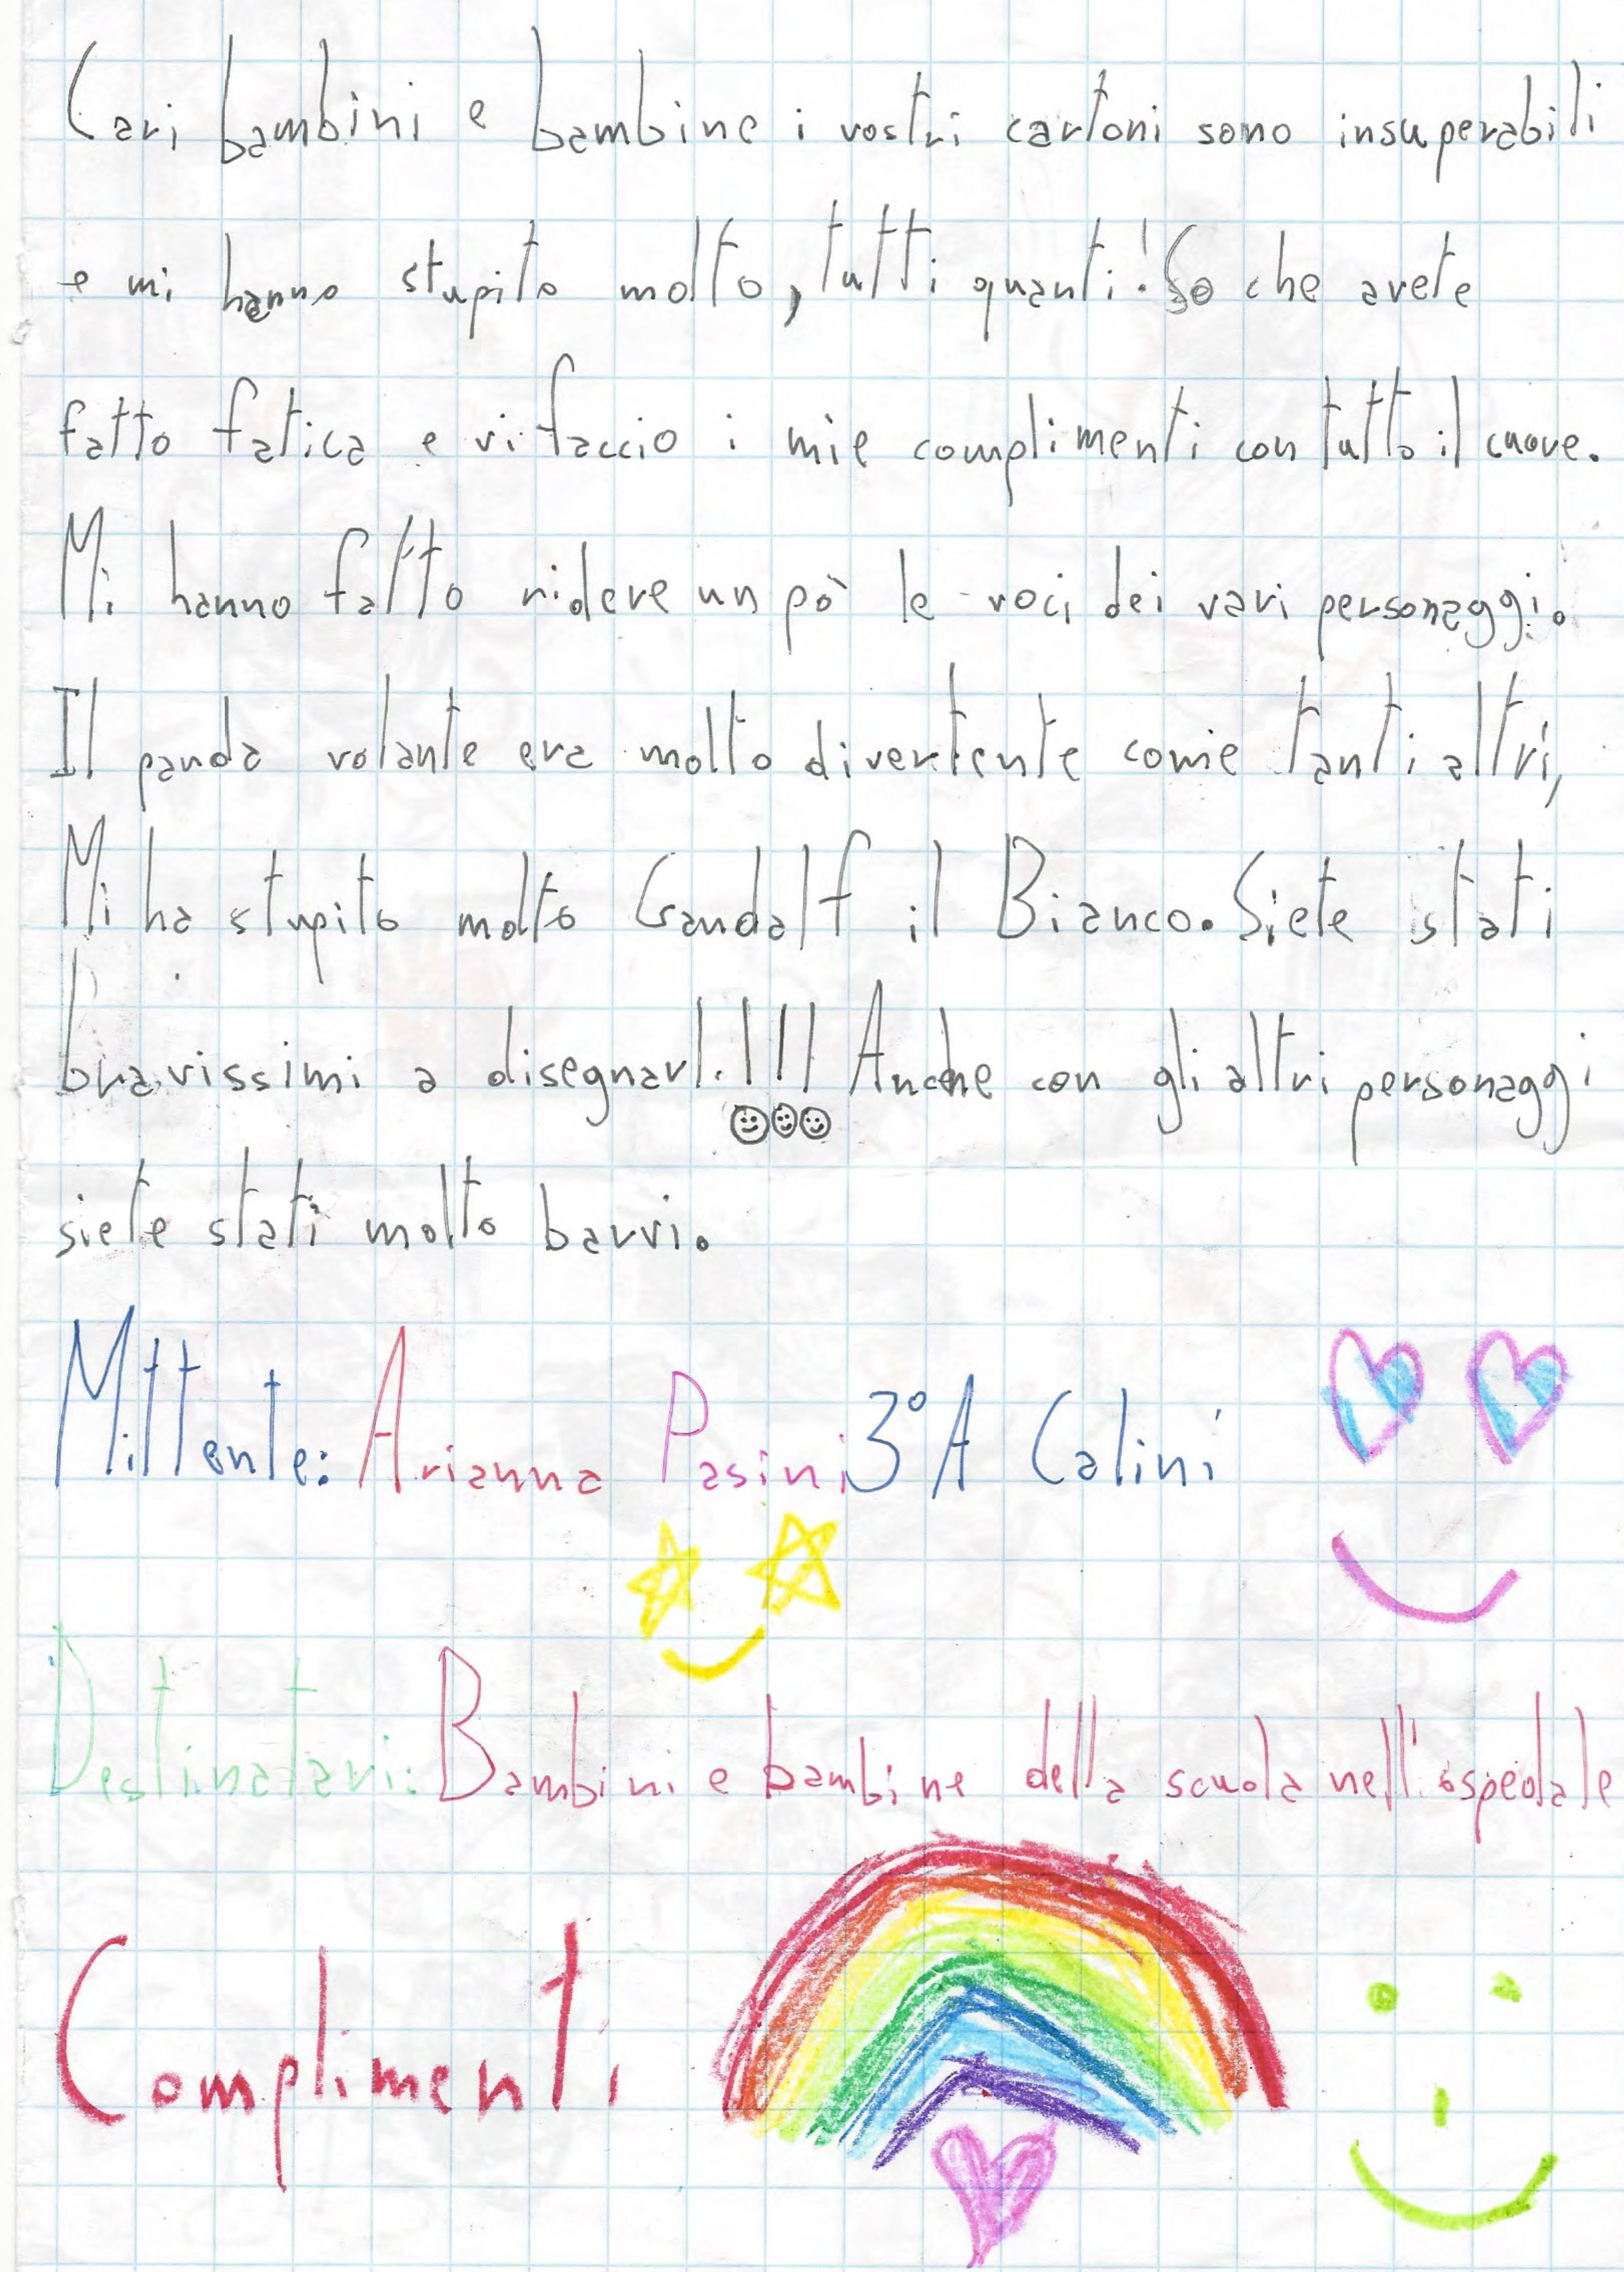 Cari bambini e bambine i vostri cartoni sono insuperabili
e mi hanno stupito molto, tutti quanti! So che avete
fatto fatica e vi faccio i mie complimenti con tutto il cuore.
Mi hanno fatto ridere un pò le voci dei vari personaggi.
Il panda volante era molto divertente come tanti altri,
Mi ha stupito molto Gandalf il Bianco. Siete stati
bravissimi a disegnarl.!!! Anche con gli altri personaggi
siete stati molto barvi.
Mittente: Arianna Pasini 3°A Calini
Destinatari: Bambini e bambine della scuola nell'ospedale
Complimenti